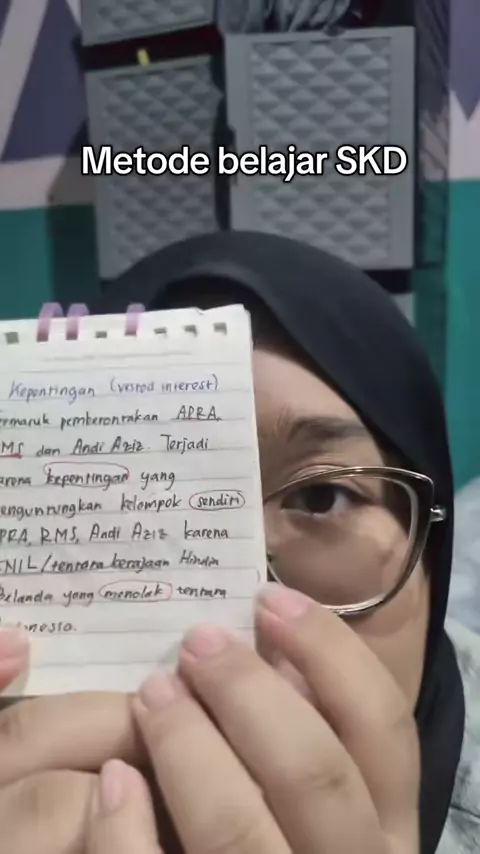 Metode belajar SKD
Kepentingan (vested interest)
ermasuk pemberontakan APRA,
RMS dan Andi Aziz. Terjadi
arena kepentingan yang
engunrungkan kelompok sendiri
PRA, RMS, Andi Aziz karena
NIL/tentara kerajaan Hindia
Belanda yang menolak tentara
nesia.